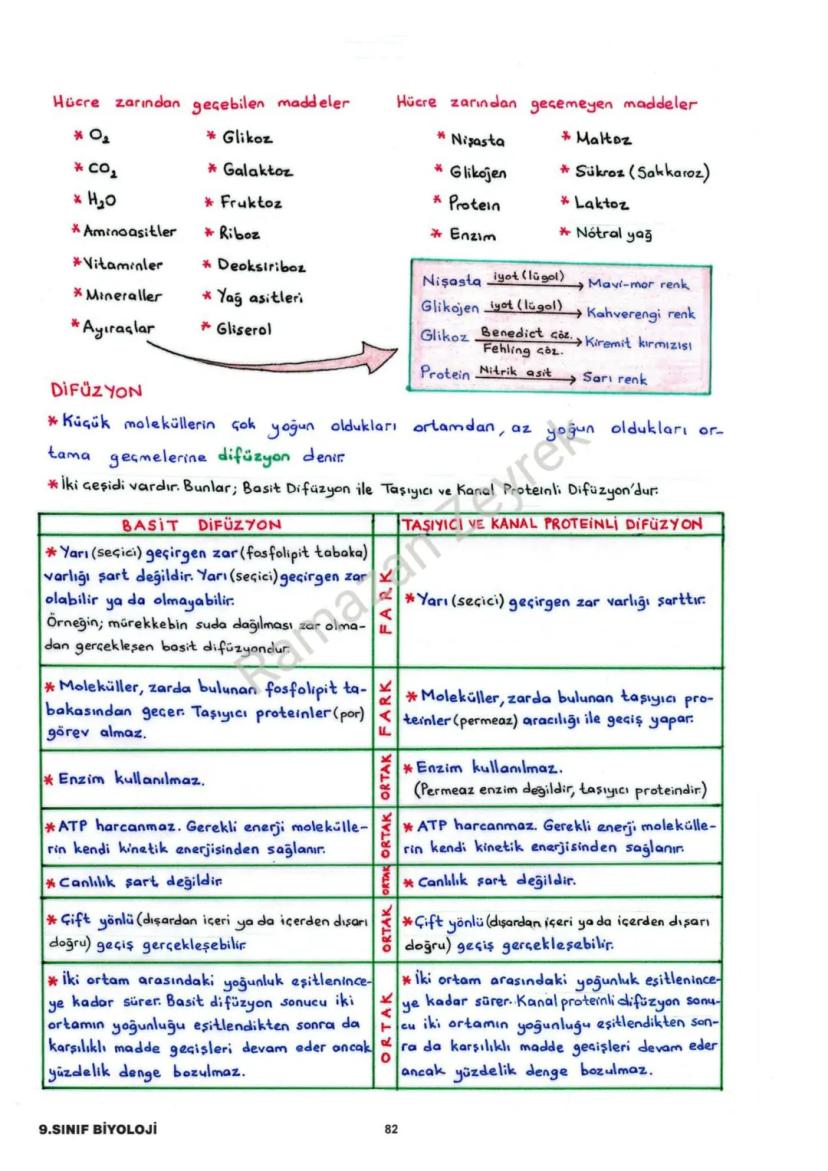 Hücre zarından geçebilen maddeler
* O₂
* CO₂
* H₂O
* Aminoasitler
* Vitaminler
* Mineraller
* Ayıraçlar
* Glikoz
* Galaktoz
* Fruktoz
* Riboz
* Deoksiriboz
* Yağ asitleri
* Gliserol
Hücre zarından geçemeyen maddeler
* Nişasta
* Glikojen
* Protein
* Enzim
* Maltoz
* Sükroz (Sakkaroz)
* Laktoz
* Nötral yağ
Nişasta iyot (lügol) → Mavi-mor renk
Glikojen iyot (lügol) → Kahverengi renk
Glikoz Benedict çöz. Fehling çöz. → Kiremit kırmızısı
Protein Nitrik asit → Sarı renk
DİFÜZYON
* Küçük moleküllerin çok yoğun oldukları ortamdan, az yoğun oldukları or-
tama geçmelerine difüzyon denir.
* İki çeşidi vardır. Bunlar; Basit Difüzyon ile Taşıyıcı ve Kanal Proteinli Difüzyon'dur.
BASİT DİFÜZYON
TAŞIYICI VE KANAL PROTEİNLİ DİFÜZYON
* Yarı (seçici) geçirgen zar (fosfolipit tabaka)
varlığı şart değildir. Yarı (seçici) geçirgen zar
olabilir ya da olmayabilir.
Örneğin; mürekkebin suda dağılması zar olma-
dan gerçekleşen basit difüzyondur.
FARK
* Yarı (seçici) geçirgen zar varlığı şarttır.
* Moleküller, zarda bulunan fosfolipit ta-
bakasından geçer. Taşıyıcı proteinler (por)
görev almaz.
FARK
* Moleküller, zarda bulunan taşıyıcı pro-
teinler (permeaz) aracılığı ile geçiş yapar.
* Enzim kullanılmaz.
ORTAK
* Enzim kullanılmaz.
(Permeaz enzim değildir, taşıyıcı proteindir)
* ATP harcanmaz. Gerekli enerji molekülle-
rin kendi kinetik enerjisinden sağlanır.
ORTAK
* ATP harcanmaz. Gerekli enerji molekülle-
rin kendi kinetik enerjisinden sağlanır.
* Canlılık şart değildir.
ORTAK
* Canlılık şart değildir.
* Çift yönlü (dışardan içeri ya da içerden dışarı
doğru) geçiş gerçekleşebilir.
ORTAK
* Çift yönlü (dışardan içeri ya da içerden dışarı
doğru) geçiş gerçekleşebilir.
* İki ortam arasındaki yoğunluk eşitlenince-
ye kadar sürer. Basit difüzyon sonucu iki
ortamın yoğunluğu eşitlendikten sonra da
karşılıklı madde geçişleri devam eder ancak
yüzdelik denge bozulmaz.
ORTAK
* İki ortam arasındaki yoğunluk eşitlenince-
ye kadar sürer. Kanal proteinli difüzyon sonu-
cu iki ortamın yoğunluğu eşitlendikten son-
ra da karşılıklı madde geçişleri devam eder
ancak yüzdelik denge bozulmaz.
Ramazan Zeyrek
9.SINIF BİYOLOJİ
82